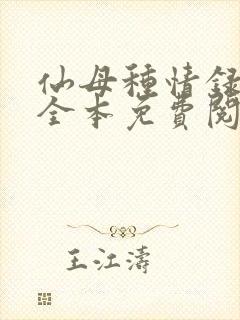 仙母種情録
全本免費閱
王江濤